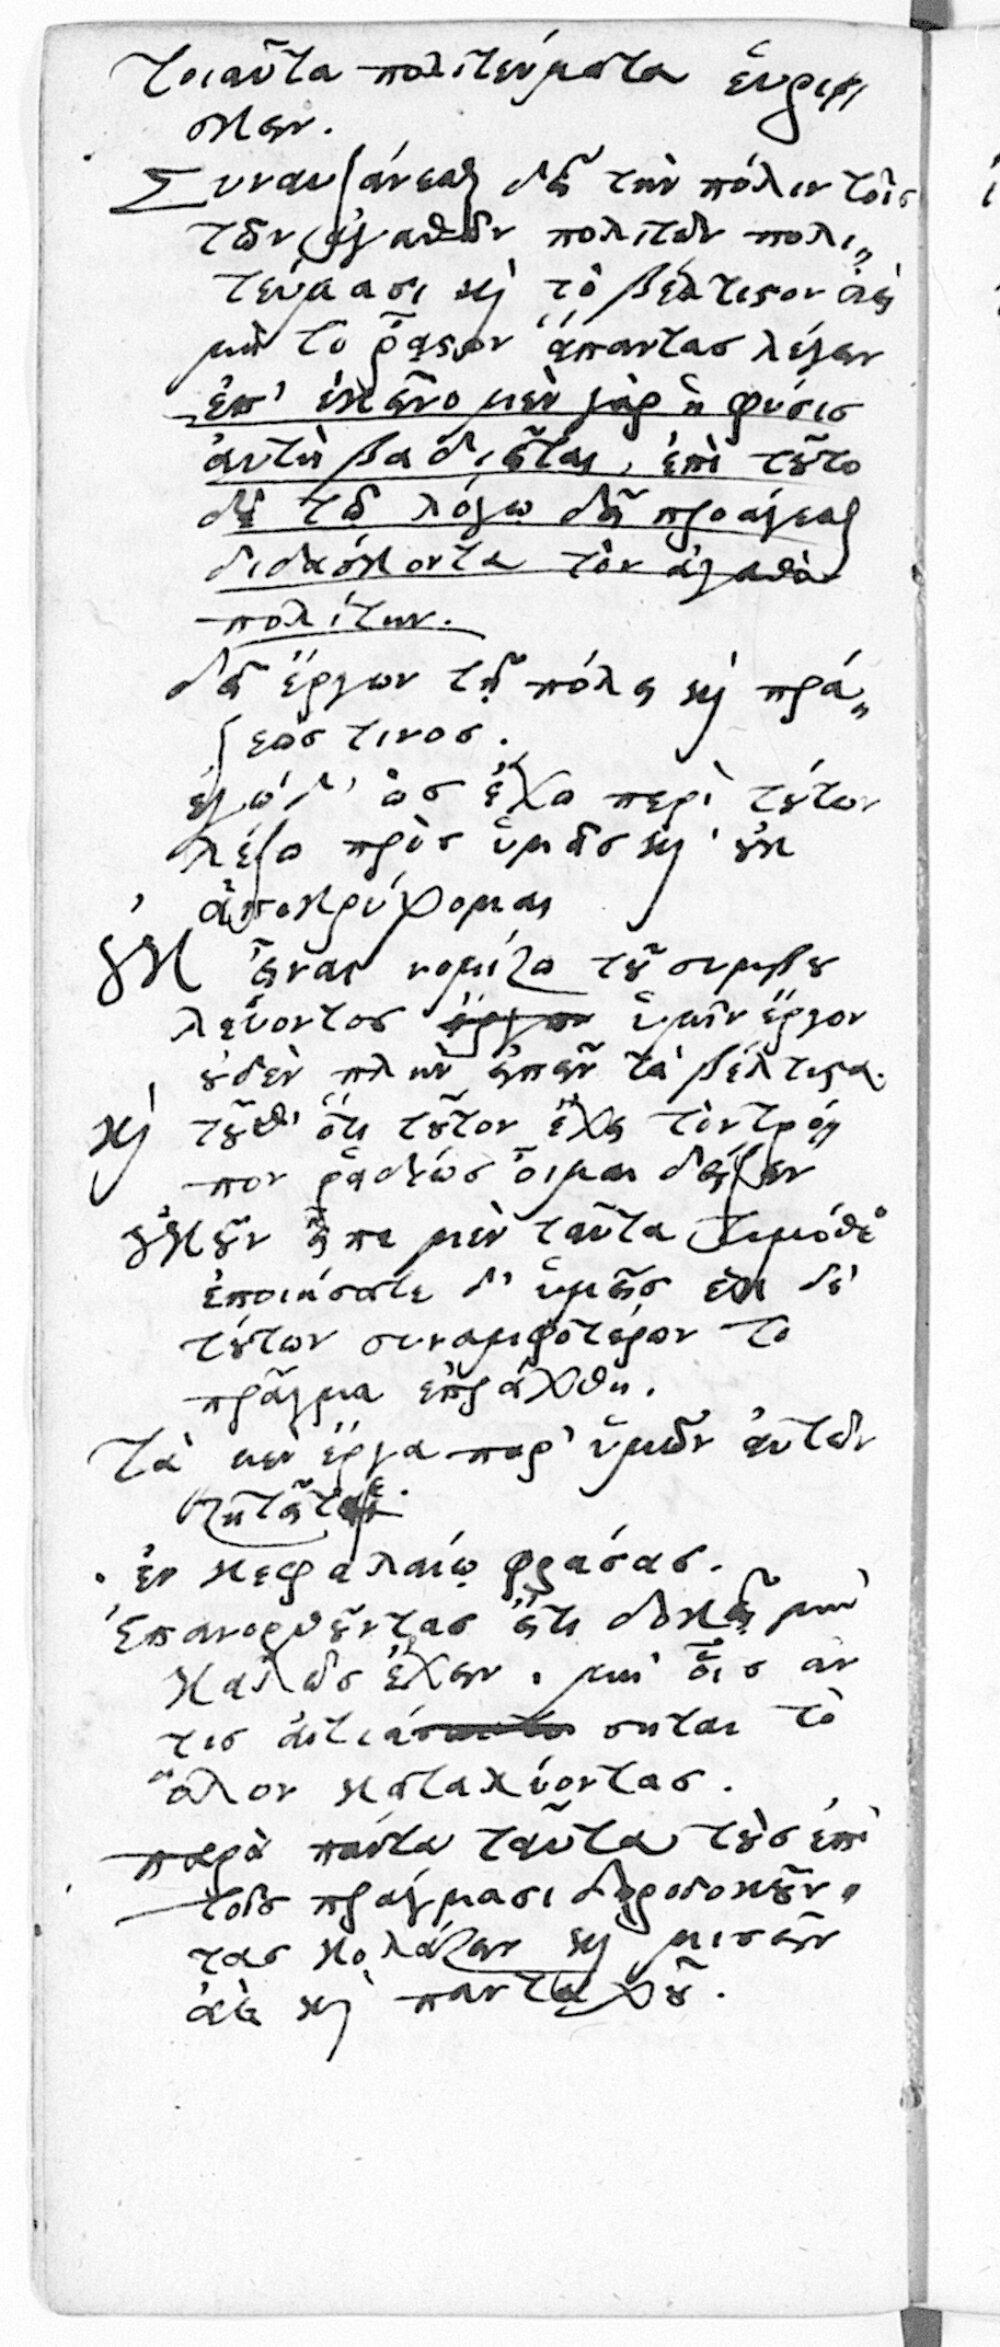 τοιαῦτα πολιτεύματα εὑρι//
σκειν.
Συναυξάνεσθαι δεῖ τὴν πόλιν τοῖς
τῶν ἀγαθῶν πολιτῶν πολι//
τεύμασι καὶ τὸ βέλτιστον ἀεὶ
μὴ τὸ ῥᾷστον ἅπαντας λέγειν
ἐπ' ἐκεῖνο μὲν γὰρ ἡ φύσις
αὐτὴ βαδιεῖται, ἐπὶ τοῦτο
δὲ τῷ λόγῳ δεῖ προάγεσθαι
διδάσκοντα τὸν ἀγαθὸν
πολίτην.
δεῖ ἔργων τῇ πόλει καὶ πρά//
ξεώς τινος.
ἐγὼ δ' ὡς ἔχω περὶ τούτων
λέξω πρὸς ὑμᾶς καὶ οὐκ
ἀποκρύψομαι
οὐκ εἶναι νομίζω τοῦ συμβου
λεύοντος ἔργον ὑμῖν ἔργον
οὐδὲν πλὴν εἰπεῖν τὰ βέλτιστα.
καὶ τοῦθ' ὅτι τοῦτον ἔχει τὸν τρό//
πον ῥᾳδίως οἶμαι δείξειν
οὐκοῦν εἶπε μὲν ταῦτα Τιμόθεος
ἐποιήσατε δ' ὑμεῖς ἐκ δὲ
τούτων συναμφοτέρων τὸ
πρᾶγμα ἐπράχθη.
Τὰ μὲν ἔργα παρ' ὑμῶν αὐτῶν
ζητεῖτε.
ἐν κεφαλαίῳ φράσας.
Ἐπανορθοῦντας εἴ τι δοκεῖ μὴ
καλῶς ἔχειν, μὴ οἷς ἄν
τις αἰτιάσηται τὸ
ὅλον καταλύοντας.
παρὰ πάντα ταῦτα τοὺς ἐπὶ
τοῖς πράγμασι δωροδοκοῦν//
τας κολάζειν καὶ μισεῖν
ἀεὶ καὶ πανταχοῦ.